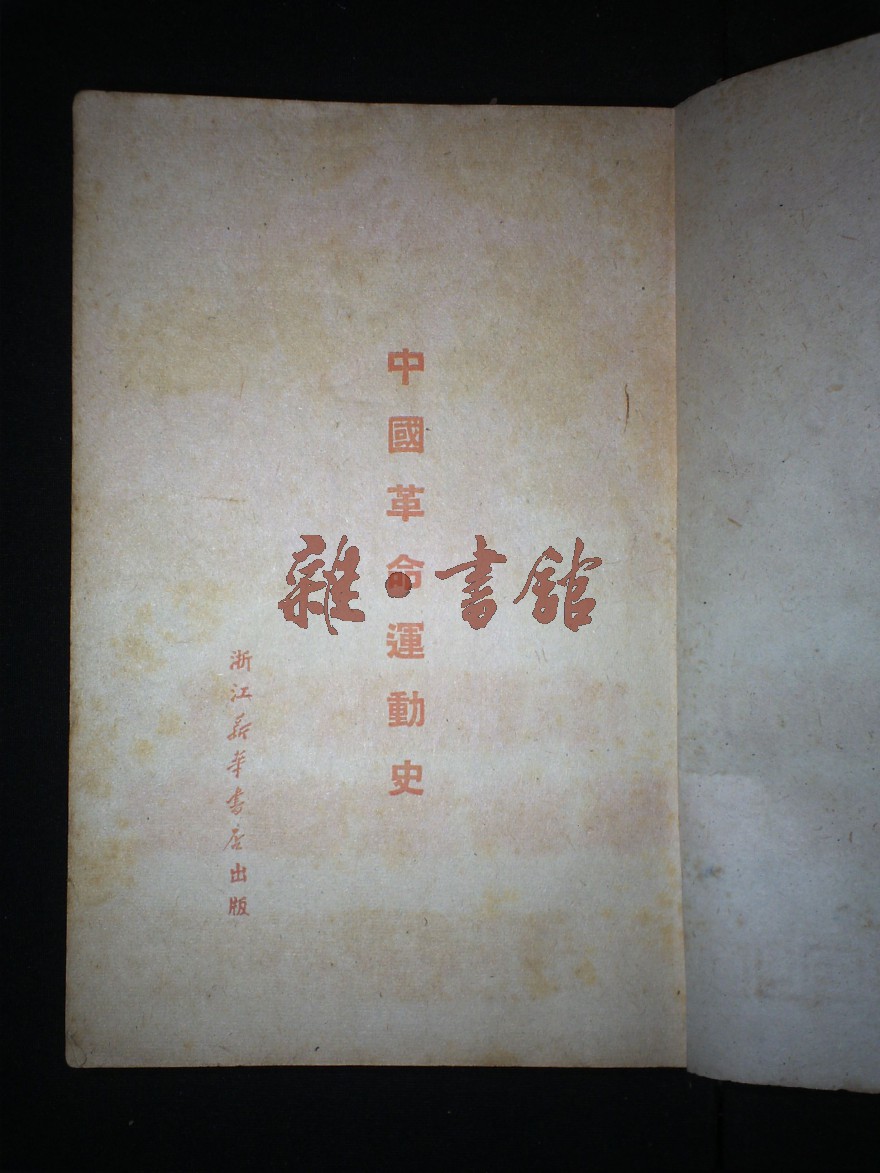 中國革命運動史
浙江新华書店出版
雜·書館